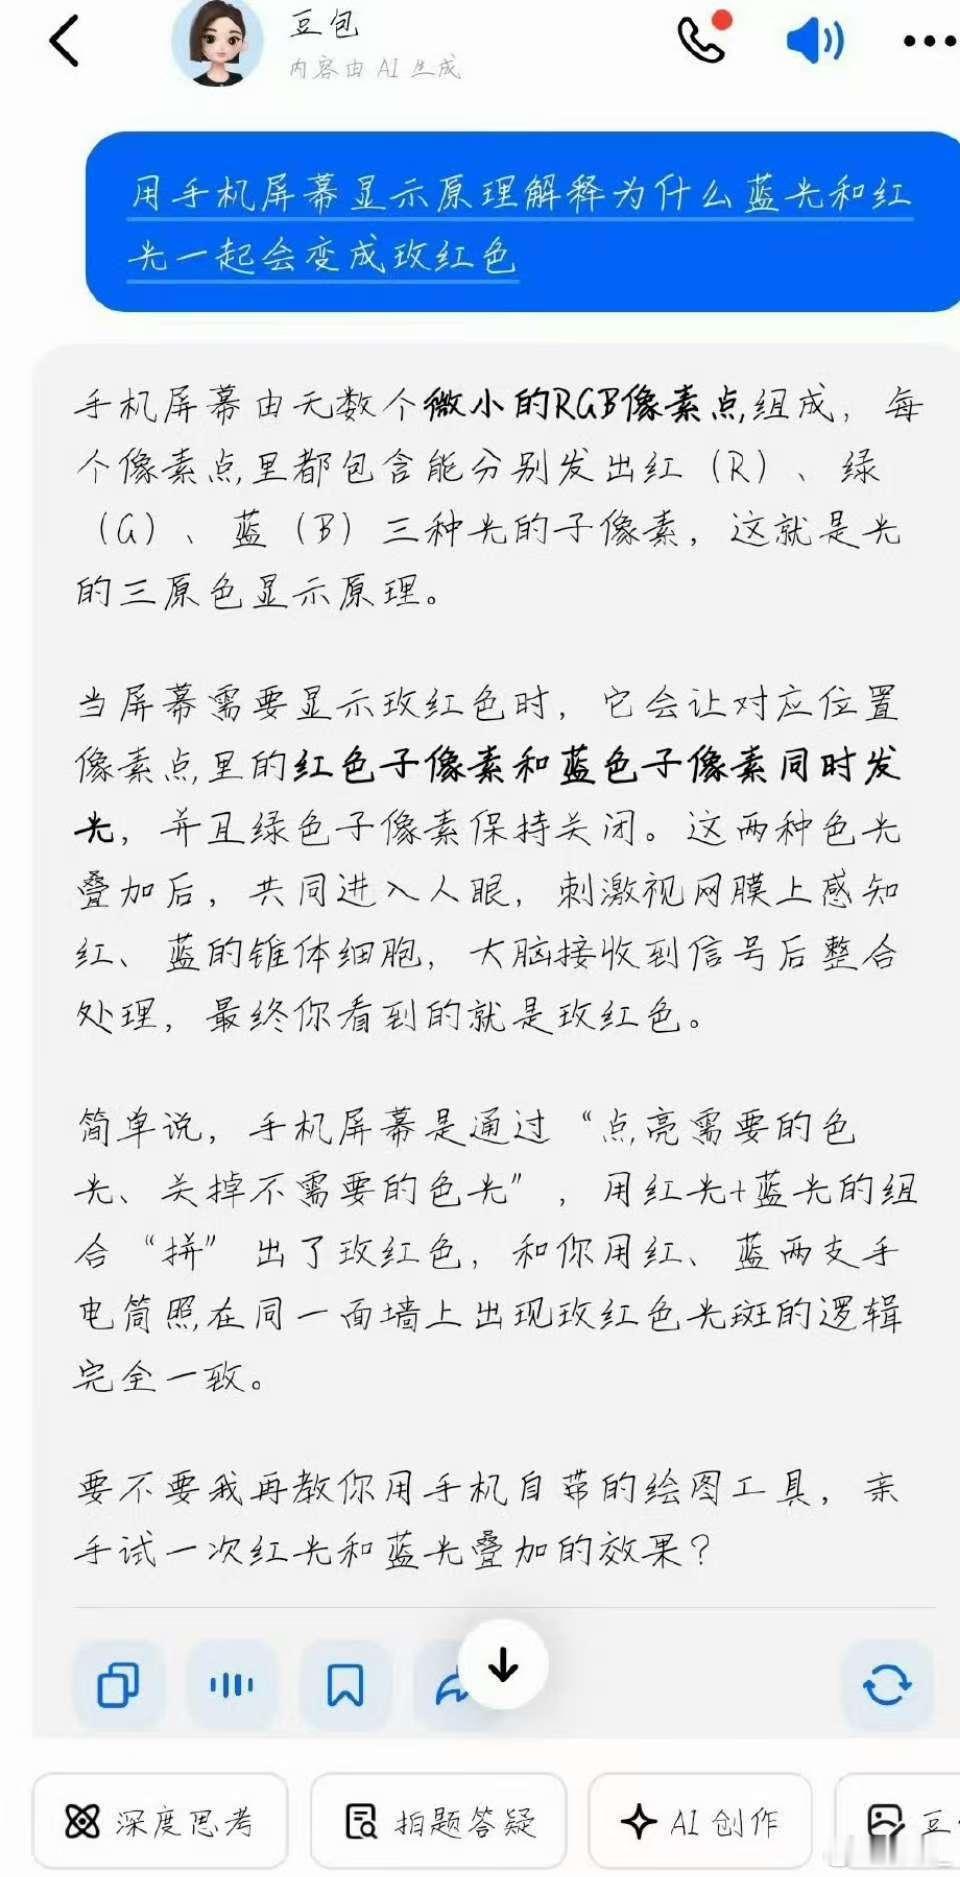 豆包
内容由 AI 生成
用手机屏幕显示原理解释为什么蓝光和红
光一起会变成玫红色
手机屏幕由无数个微小的RGB像素点组成，每
个像素点里都包含能分别发出红（R）、绿
（G）、蓝（B）三种光的子像素，这就是光
的三原色显示原理。
当屏幕需要显示玫红色时，它会让对应位置
像素点里的红色子像素和蓝色子像素同时发
光，并且绿色子像素保持关闭。这两种色光
叠加后，共同进入人眼，刺激视网膜上感知
红、蓝的锥体细胞，大脑接收到信号后整合
处理，最终你看到的就是玫红色。
简单说，手机屏幕是通过“点亮需要的色
光、关掉不需要的色光”，用红光+蓝光的组
合“拼”出了玫红色，和你用红、蓝两支手
电筒照在同一面墙上出现玫红色光斑的逻辑
完全一致。
要不要我再教你用手机自带的绘图工具，亲
手试一次红光和蓝光叠加的效果？
深度思考
拍题答疑
AI 创作
豆